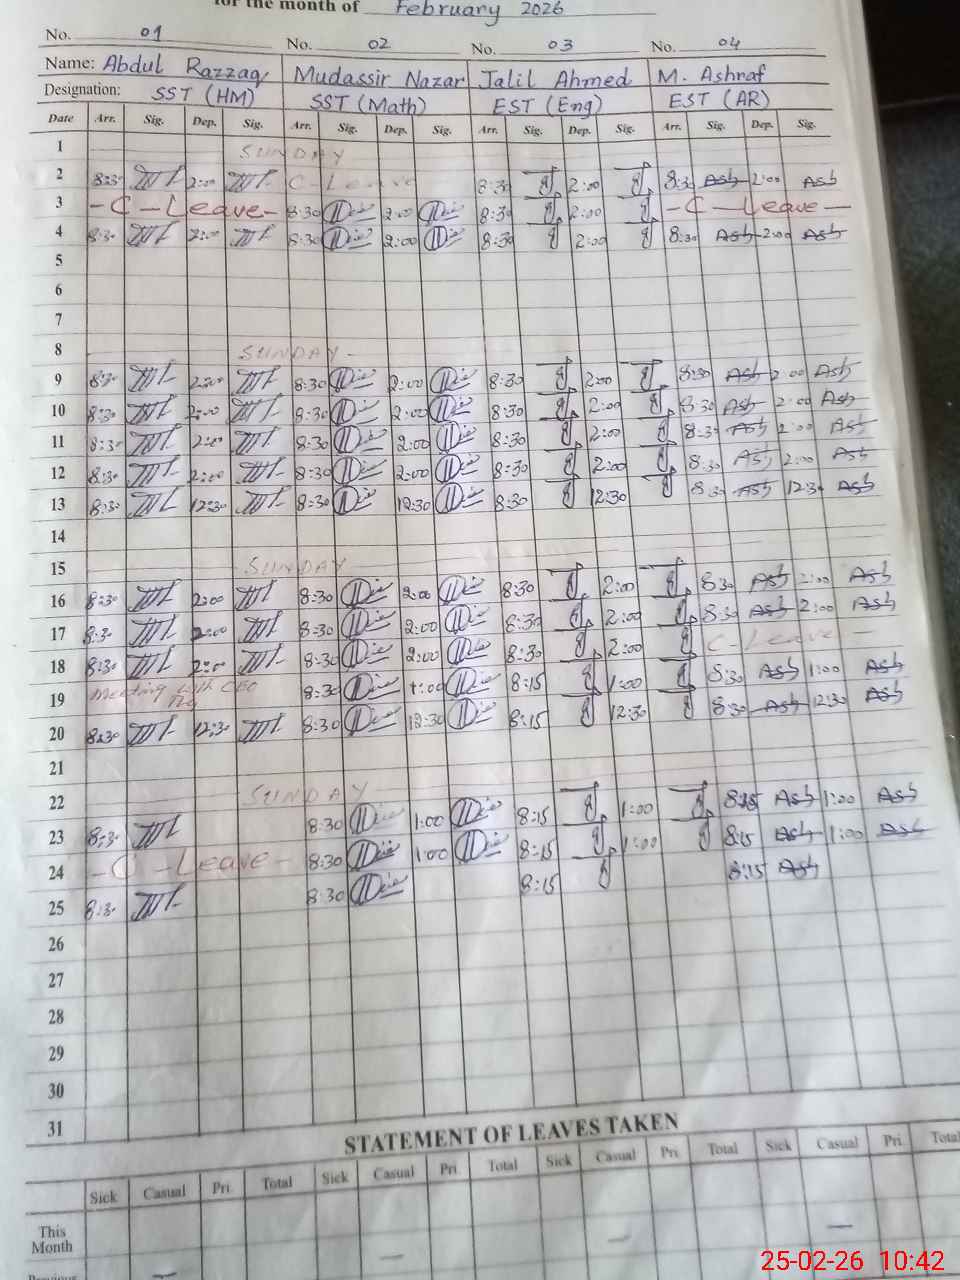 for the month of February 2026
No. 01 No. 02 No. 03 No. 04
Name: Abdul Razzaq Mudassir Nazar Jalil Ahmed M. Ashraf
Designation: SST (HM) SST (Math) EST (Eng) EST (AR)
Date Arr. Sig. Dep. Sig. Arr. Sig. Dep. Sig. Arr. Sig. Dep. Sig. Arr. Sig. Dep. Sig.
1 SUNDAY
2 8:30 2:00 C-Leave 8:30 2:00 8:30 Ash 2:00 Ash
3 -C-Leave- 8:30 2:00 8:30 2:00 -C-Leave-
4 8:30 2:00 8:30 2:00 8:30 2:00 8:30 Ash 2:00 Ash
5
6
7
8 SUNDAY-
9 8:30 2:00 8:30 2:00 8:30 2:00 8:30 Ash 2:00 Ash
10 8:30 2:00 8:30 2:00 8:30 2:00 8:30 Ash 2:00 Ash
11 8:30 2:00 8:30 2:00 8:30 2:00 8:30 Ash 2:00 Ash
12 8:30 2:00 8:30 2:00 8:30 2:00 8:30 Ash 2:00 Ash
13 8:30 12:30 8:30 12:30 8:30 12:30 8:30 Ash 12:30 Ash
14
15 SUNDAY
16 8:30 2:00 8:30 2:00 8:30 2:00 8:30 Ash 2:00 Ash
17 8:30 2:00 8:30 2:00 8:30 2:00 8:30 Ash 2:00 Ash
18 8:30 2:00 8:30 2:00 8:30 2:00 C-Leave-
19 Meeting with CEO 8:30 1:00 8:15 1:00 8:30 Ash 1:00 Ash
20 8:30 12:30 8:30 12:30 8:15 12:30 8:30 Ash 12:30 Ash
21
22 SUNDAY-
23 8:30 8:30 1:00 8:15 1:00 8:15 Ash 1:00 Ash
24 -C-Leave- 8:30 1:00 8:15 1:00 8:15 Ash 1:00 Ash
25 8:30 8:30 8:15 8:15 Ash
26
27
28
29
30
31
STATEMENT OF LEAVES TAKEN
Sick Casual Pri. Total Sick Casual Pri. Total Sick Casual Pri. Total Sick Casual Pri. Total
This
Month
Previous
25-02-26 10:42